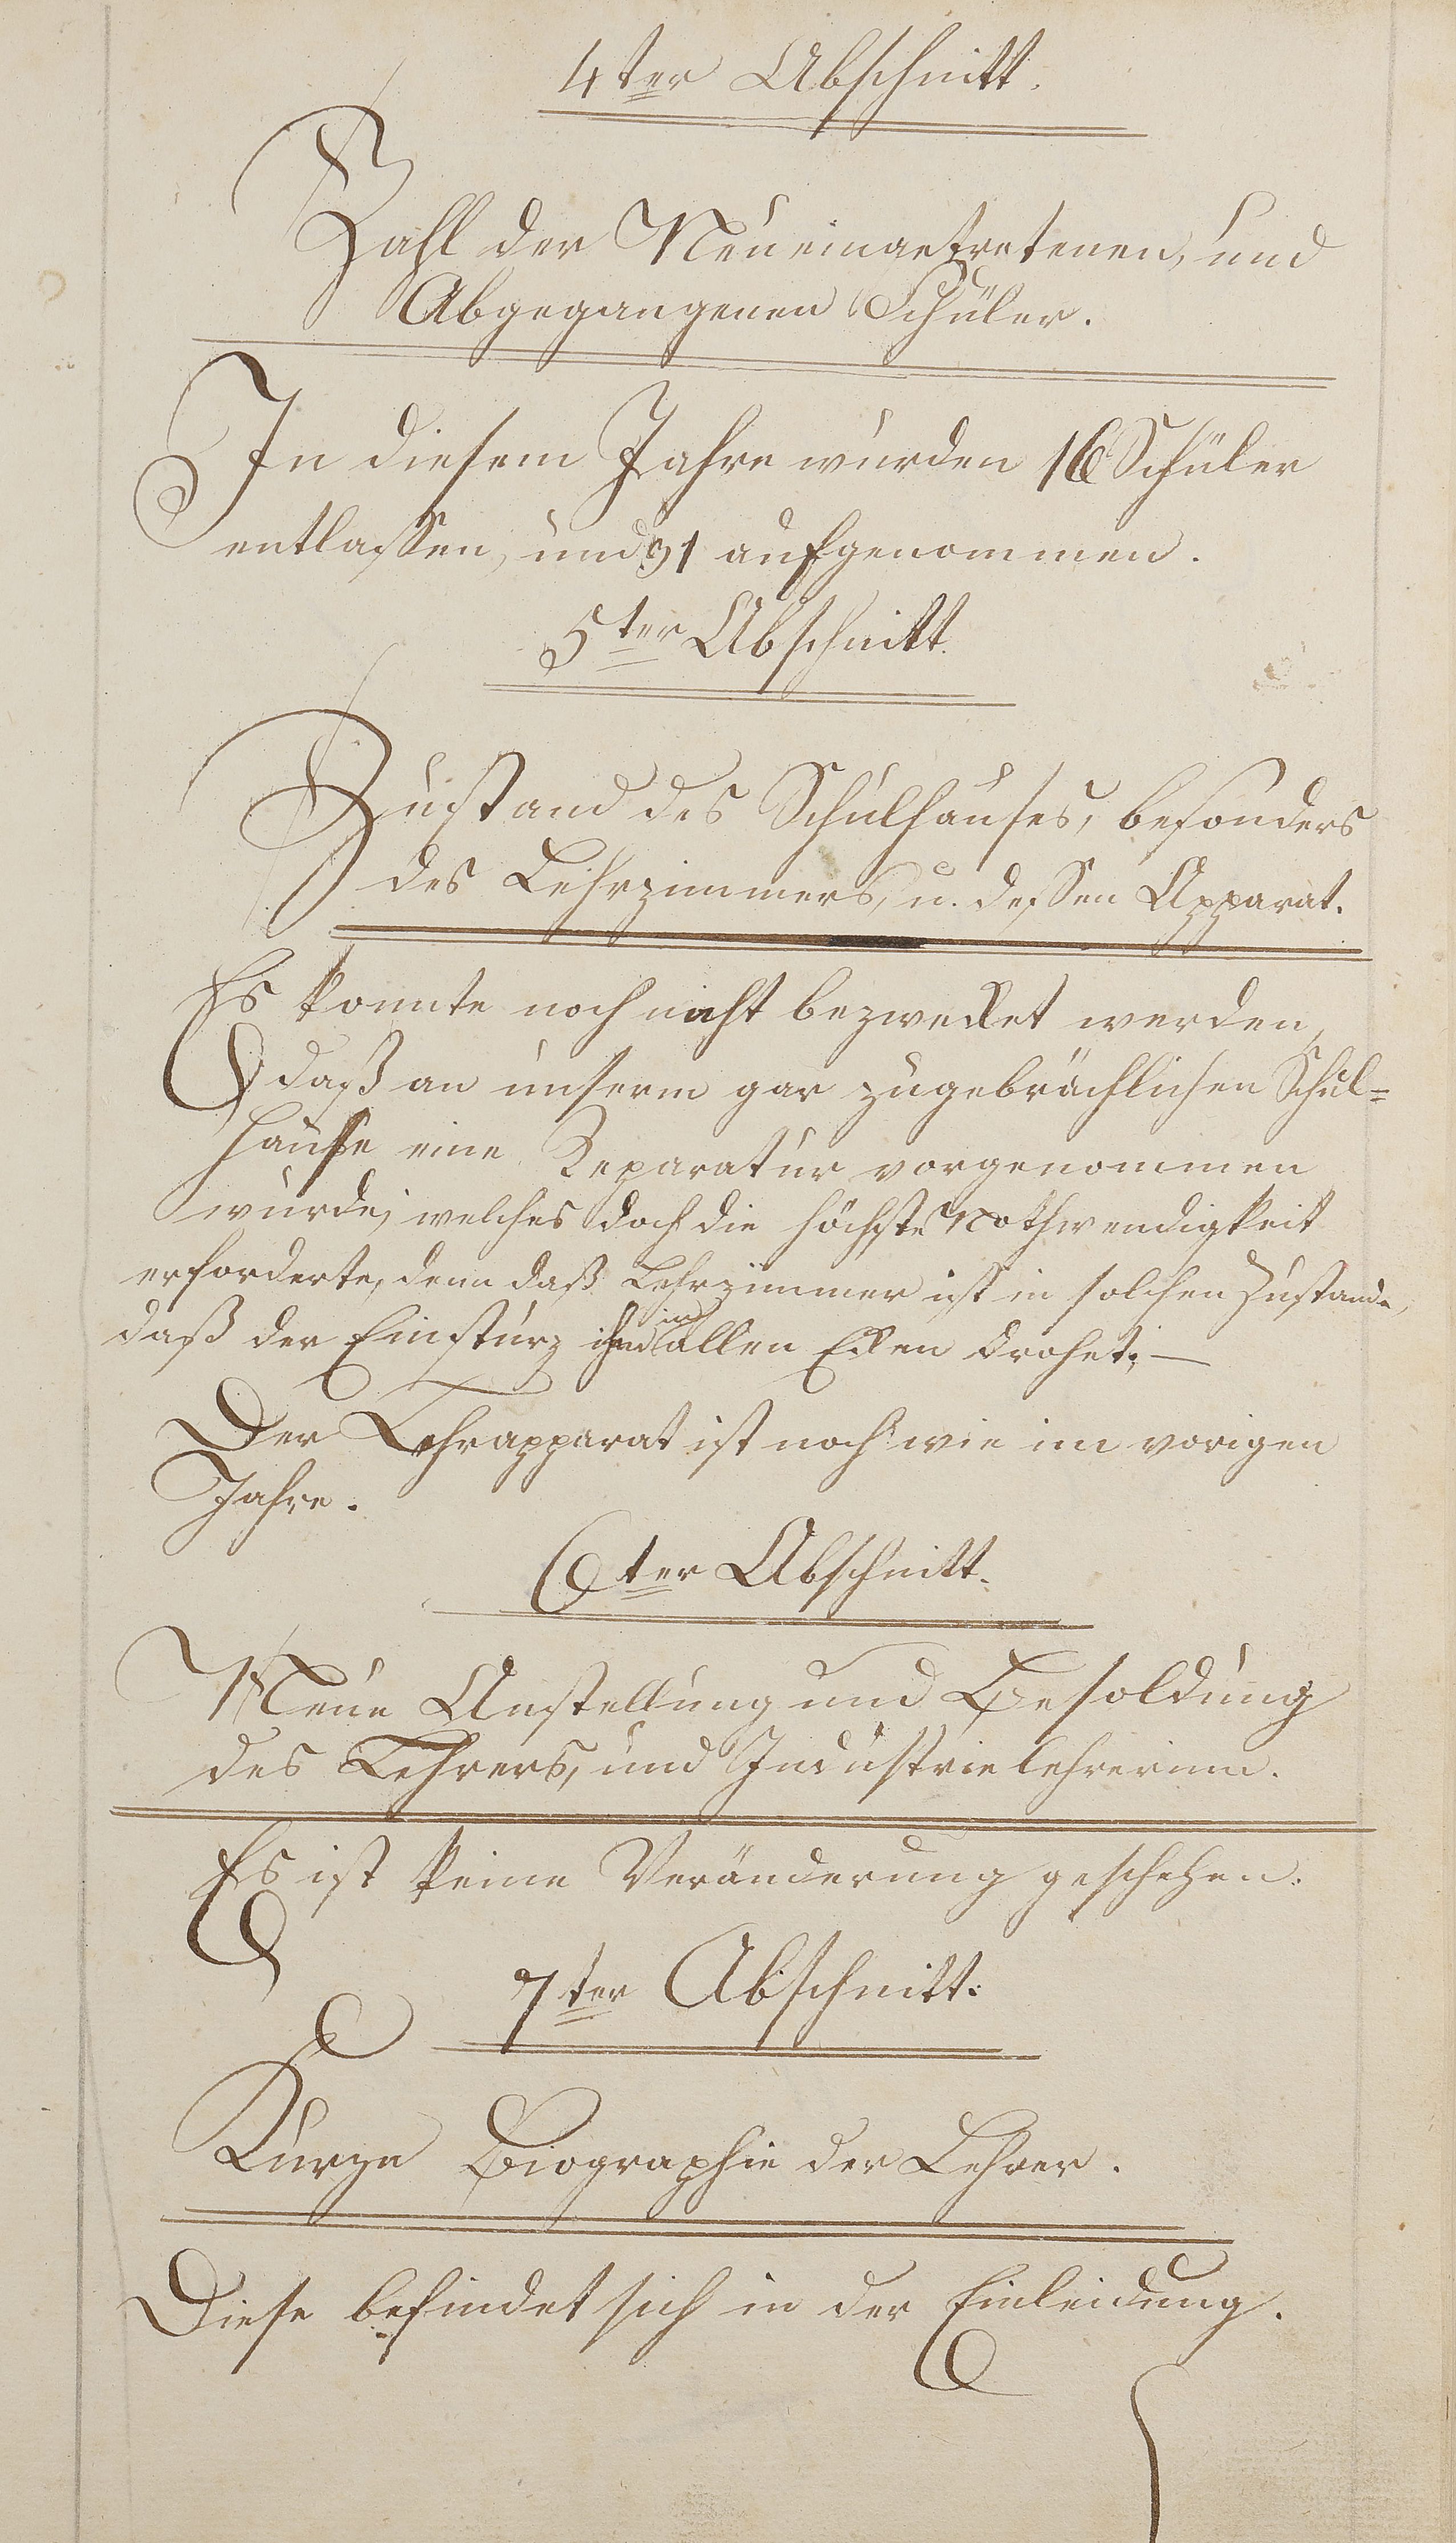 4ter Abschnitt.
Zahl der Neueingetretenen, und
Abgegangenen Schüler.
In diesem Jahre wurden 16 Schüler
entlassen, und 31 aufgenommen.
5ter Abschnitt.
Zustand des Schulhauses, besonders
des Lehrzimmers, u. dessen Apparat.
Es konnte noch nicht bezwecket werden,
daß an unserm gar zugebrächlichen Schul=
hause eine Reparatur vorgenommen
wurde, welches doch die höchste Nothwendigkeit
erforderte, denn daß Lehrzimmer ist in solchen Zustande,
daß der Einsturz in allen Ecken drohet; —
Der Lehrapparat ist noch wie im vorigen
Jahre.
6ter Abschnitt.
Neue Anstellung und Besoldung
des Lehrers, und Industrielehrerinn.
Es ist keine Veränderung geschehen.
7ter Abschnitt:
Kurze Biographie der Lehrer.
Diese befindet sich in der Einleidung.